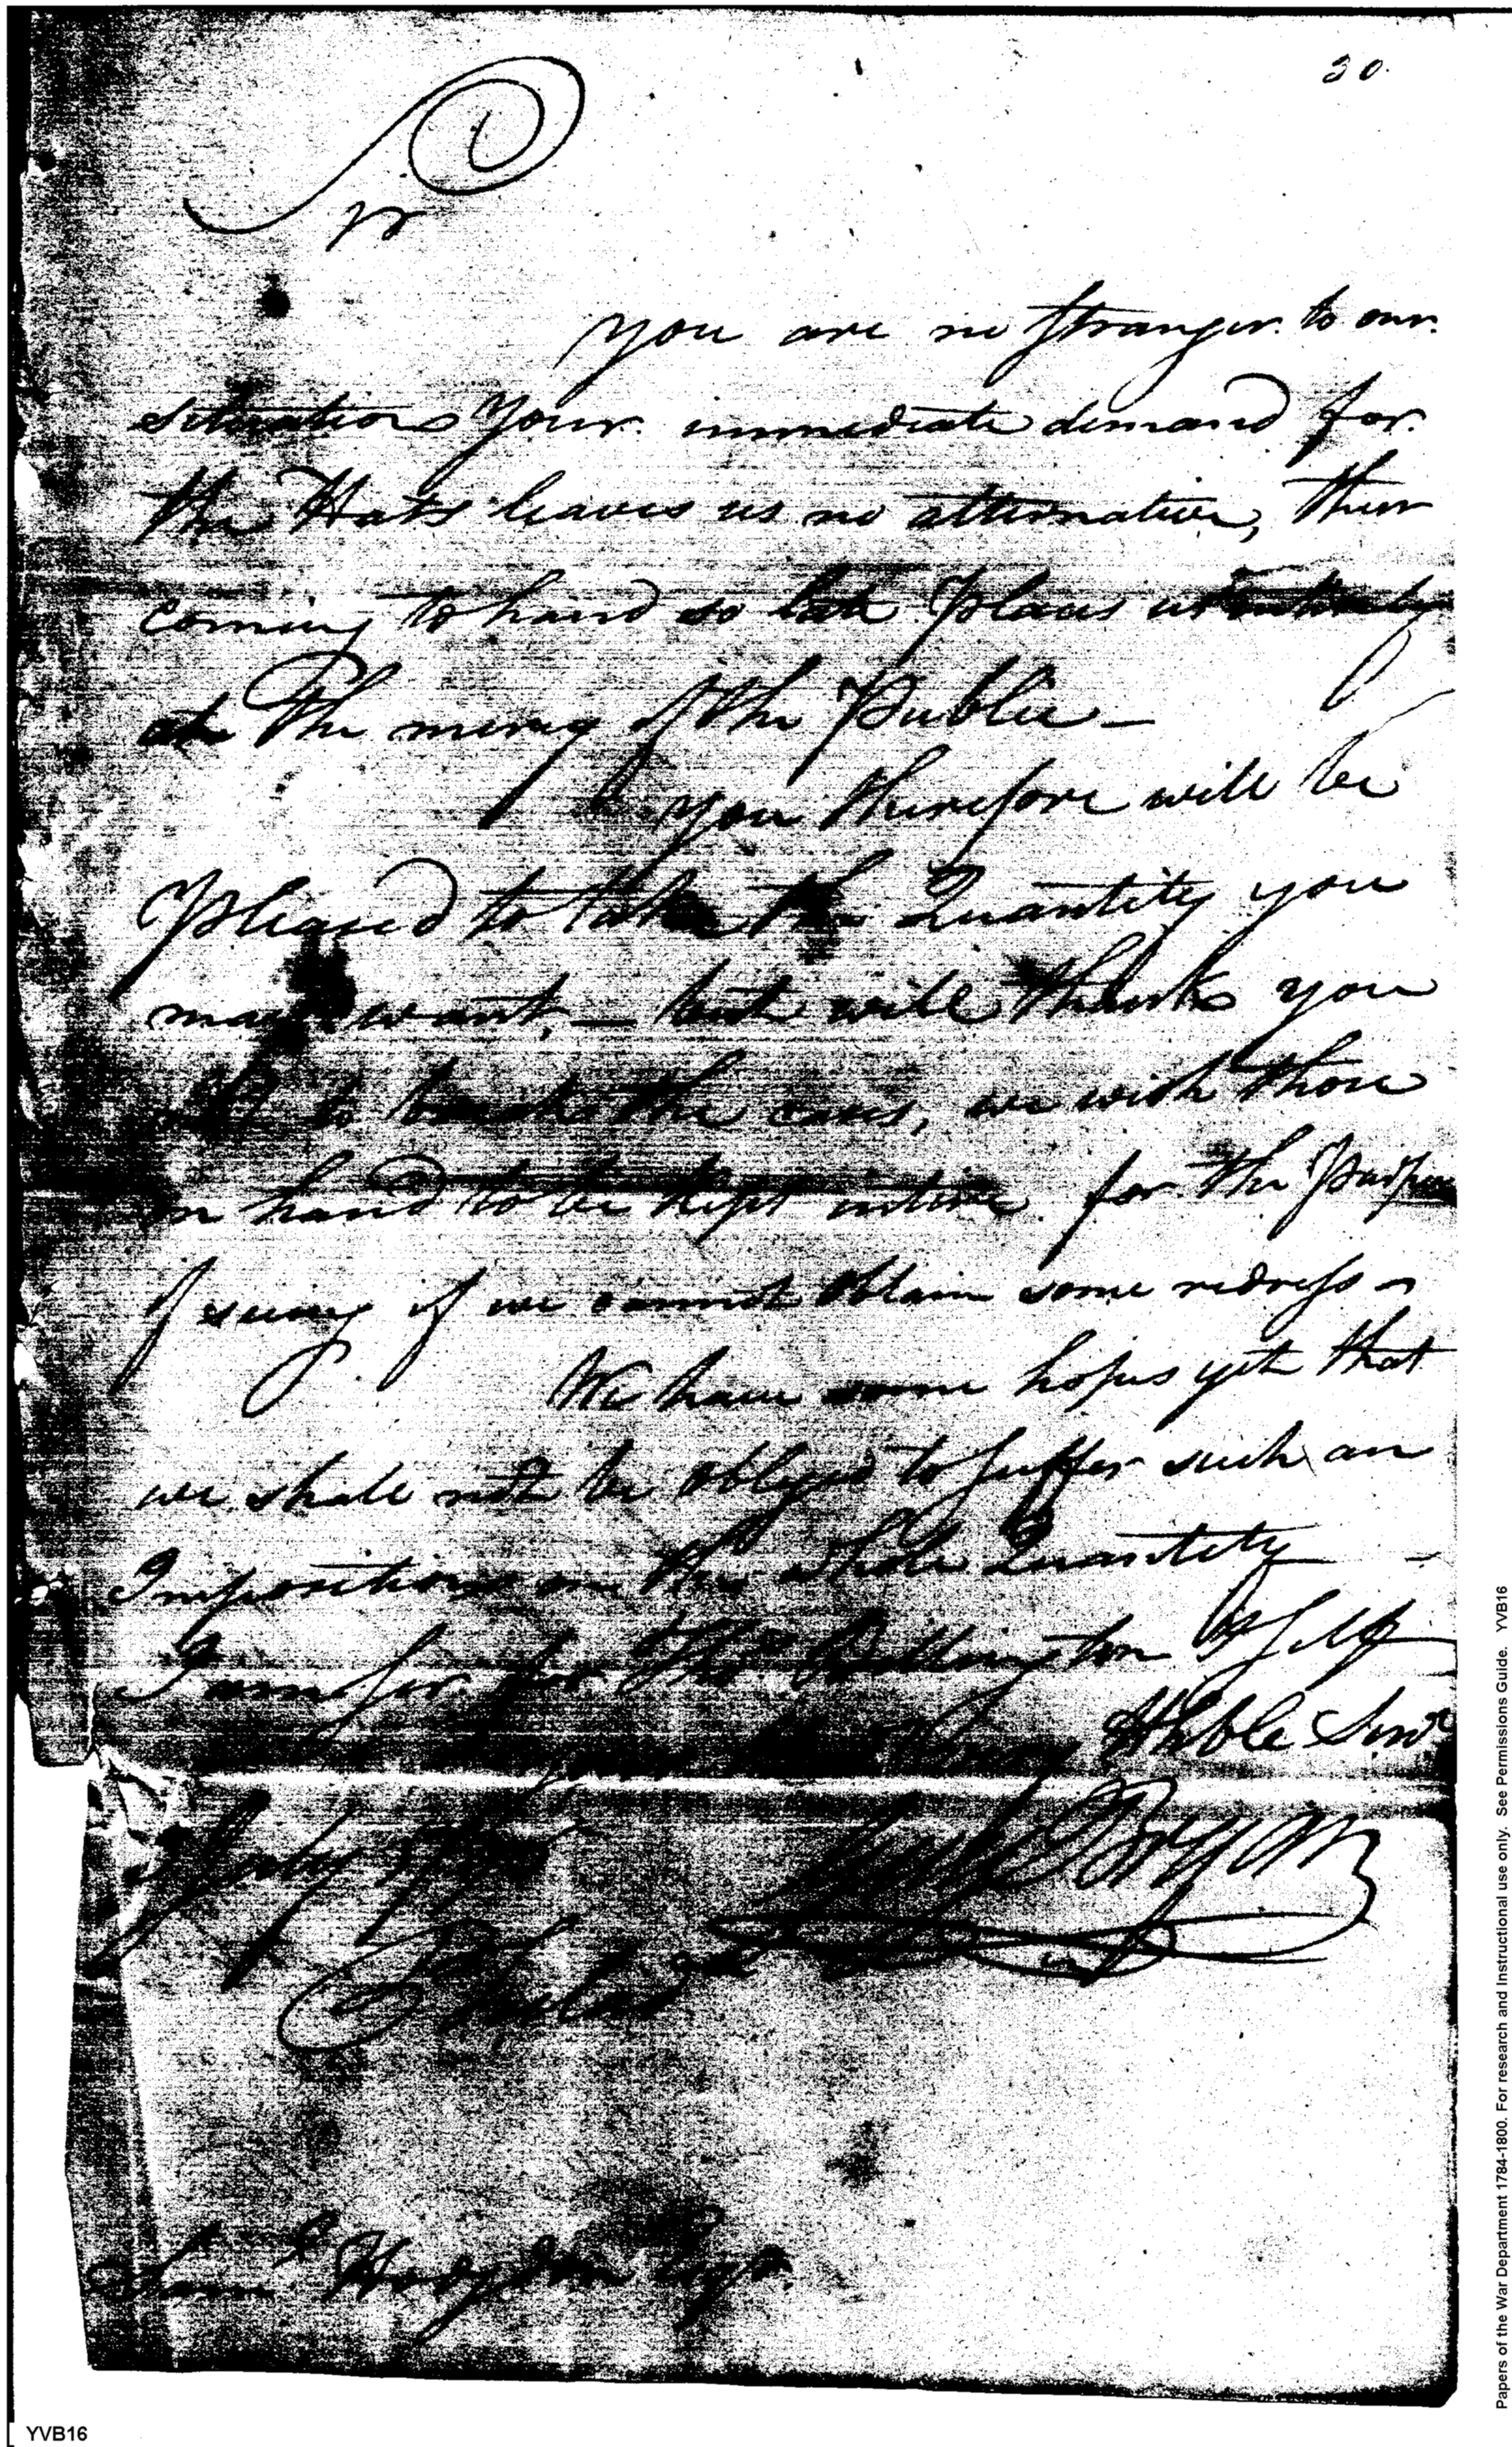 30.
Sir
You are no Stranger to our
situation Your immediate demand for
the Hats leaves us no alternative, their
coming to hand so late Places us entirely
at the mercy of the Public —
You therefore will be
Pleased to take the Quantity you
may want, — but will thank you
not to touch the cases, we wish those
on hand to be kept intire for the Purpose
of seeing if we cannot obtain some redress —
We have some hopes yet that
we shall not be obliged to suffer such an
Imposition on the whole Quantity —
I am for Tho. Billington & Self
your Hble Servt
Guy Bryan
Philad
Saml Hodgdon Esqr.
YVB16
Papers of the War Department 1784-1800. For research and Instructional use only. See Permissions Guide. YVB16